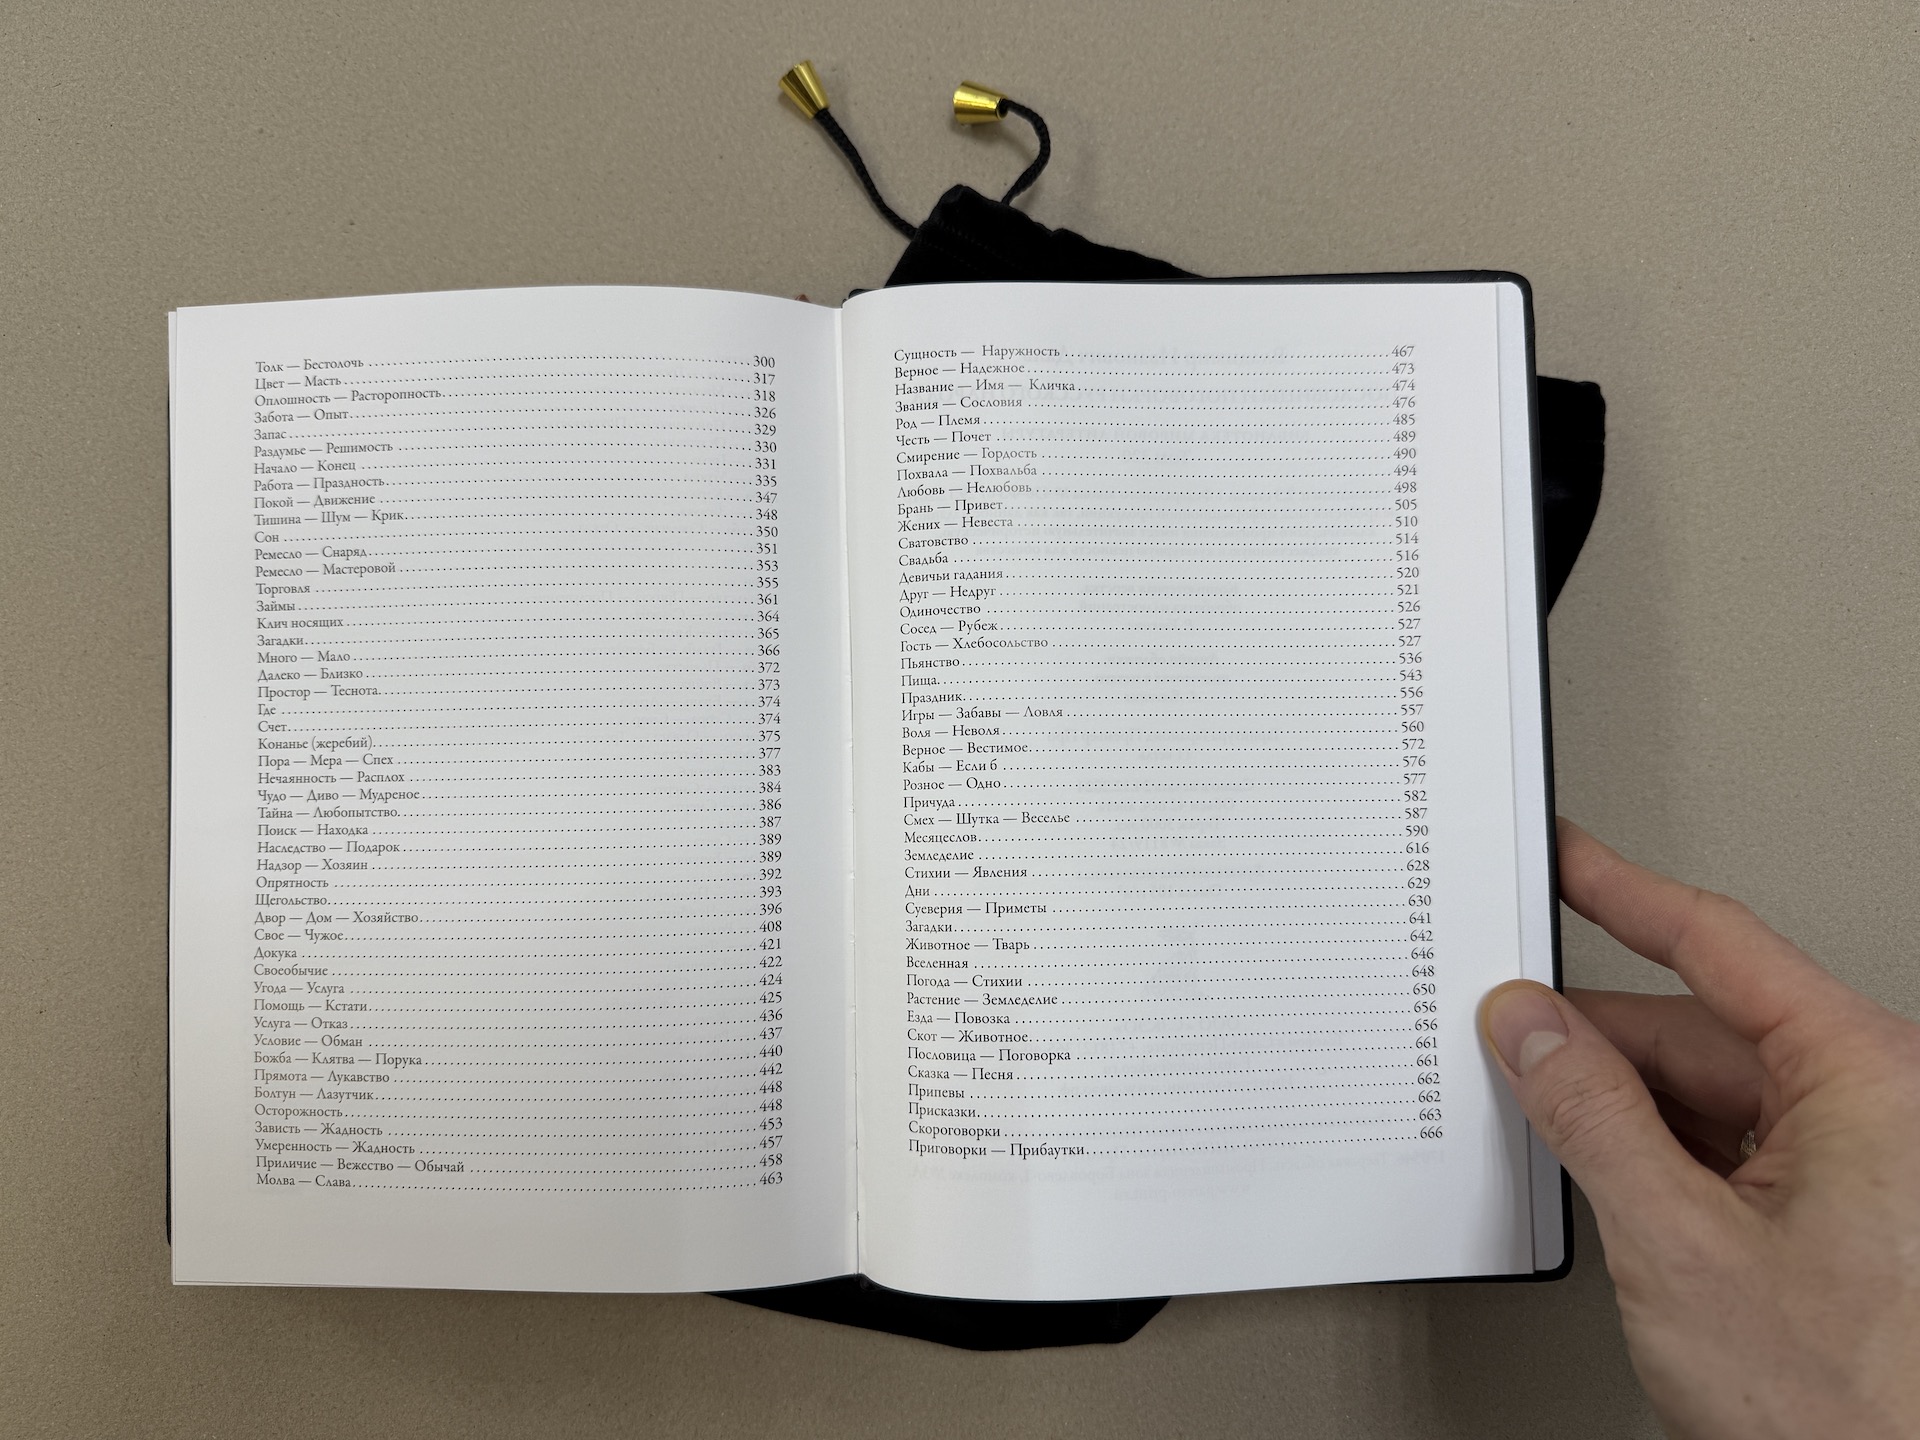 Толк — Бестолочь 300
Цвет — Масть 317
Оплошность — Расторопность 318
Забота — Опыт 326
Запас 329
Раздумье — Решимость 330
Начало — Конец 331
Работа — Праздность 335
Покой — Движение 347
Тишина — Шум — Крик 348
Сон 350
Ремесло — Снаряд 351
Ремесло — Мастеровой 353
Торговля 355
Займы 361
Клич носящих 364
Загадки 365
Много — Мало 366
Далеко — Близко 372
Простор — Теснота 373
Где 374
Счет 374
Конанье (жеребий) 375
Пора — Мера — Спех 377
Нечаянность — Расплох 383
Чудо — Диво — Мудреное 384
Тайна — Любопытство 386
Поиск — Находка 387
Наследство — Подарок 389
Надзор — Хозяин 389
Опрятность 392
Щегольство 393
Двор — Дом — Хозяйство 396
Свое — Чужое 408
Докука 421
Своеобычие 422
Угода — Услуга 424
Помощь — Кстати 425
Услуга — Отказ 436
Условие — Обман 437
Божба — Клятва — Порука 440
Прямота — Лукавство 442
Болтун — Лазутчик 448
Осторожность 448
Зависть — Жадность 453
Умеренность — Жадность 457
Приличие — Вежество — Обычай 458
Молва — Слава 463
Сущность — Наружность 467
Верное — Надежное 473
Название — Имя — Кличка 474
Звания — Сословия 476
Род — Племя 485
Честь — Почет 489
Смирение — Гордость 490
Похвала — Похвальба 494
Любовь — Нелюбовь 498
Брань — Привет 505
Жених — Невеста 510
Сватовство 514
Свадьба 516
Девичьи гадания 520
Друг — Недруг 521
Одиночество 526
Сосед — Рубеж 527
Гость — Хлебосольство 527
Пьянство 536
Пища 543
Праздник 556
Игры — Забавы — Ловля 557
Воля — Неволя 560
Верное — Вестимое 572
Кабы — Если б 576
Розное — Одно 577
Причуда 582
Смех — Шутка — Веселье 587
Месяцеслов 590
Земледелие 616
Стихии — Явления 628
Дни 629
Суеверия — Приметы 630
Загадки 641
Животное — Тварь 642
Вселенная 646
Погода — Стихии 648
Растение — Земледелие 650
Езда — Повозка 656
Скот — Животное 656
Пословица — Поговорка 661
Сказка — Песня 661
Припевы 662
Присказки 662
Скороговорки 663
Приговорки — Прибаутки 666